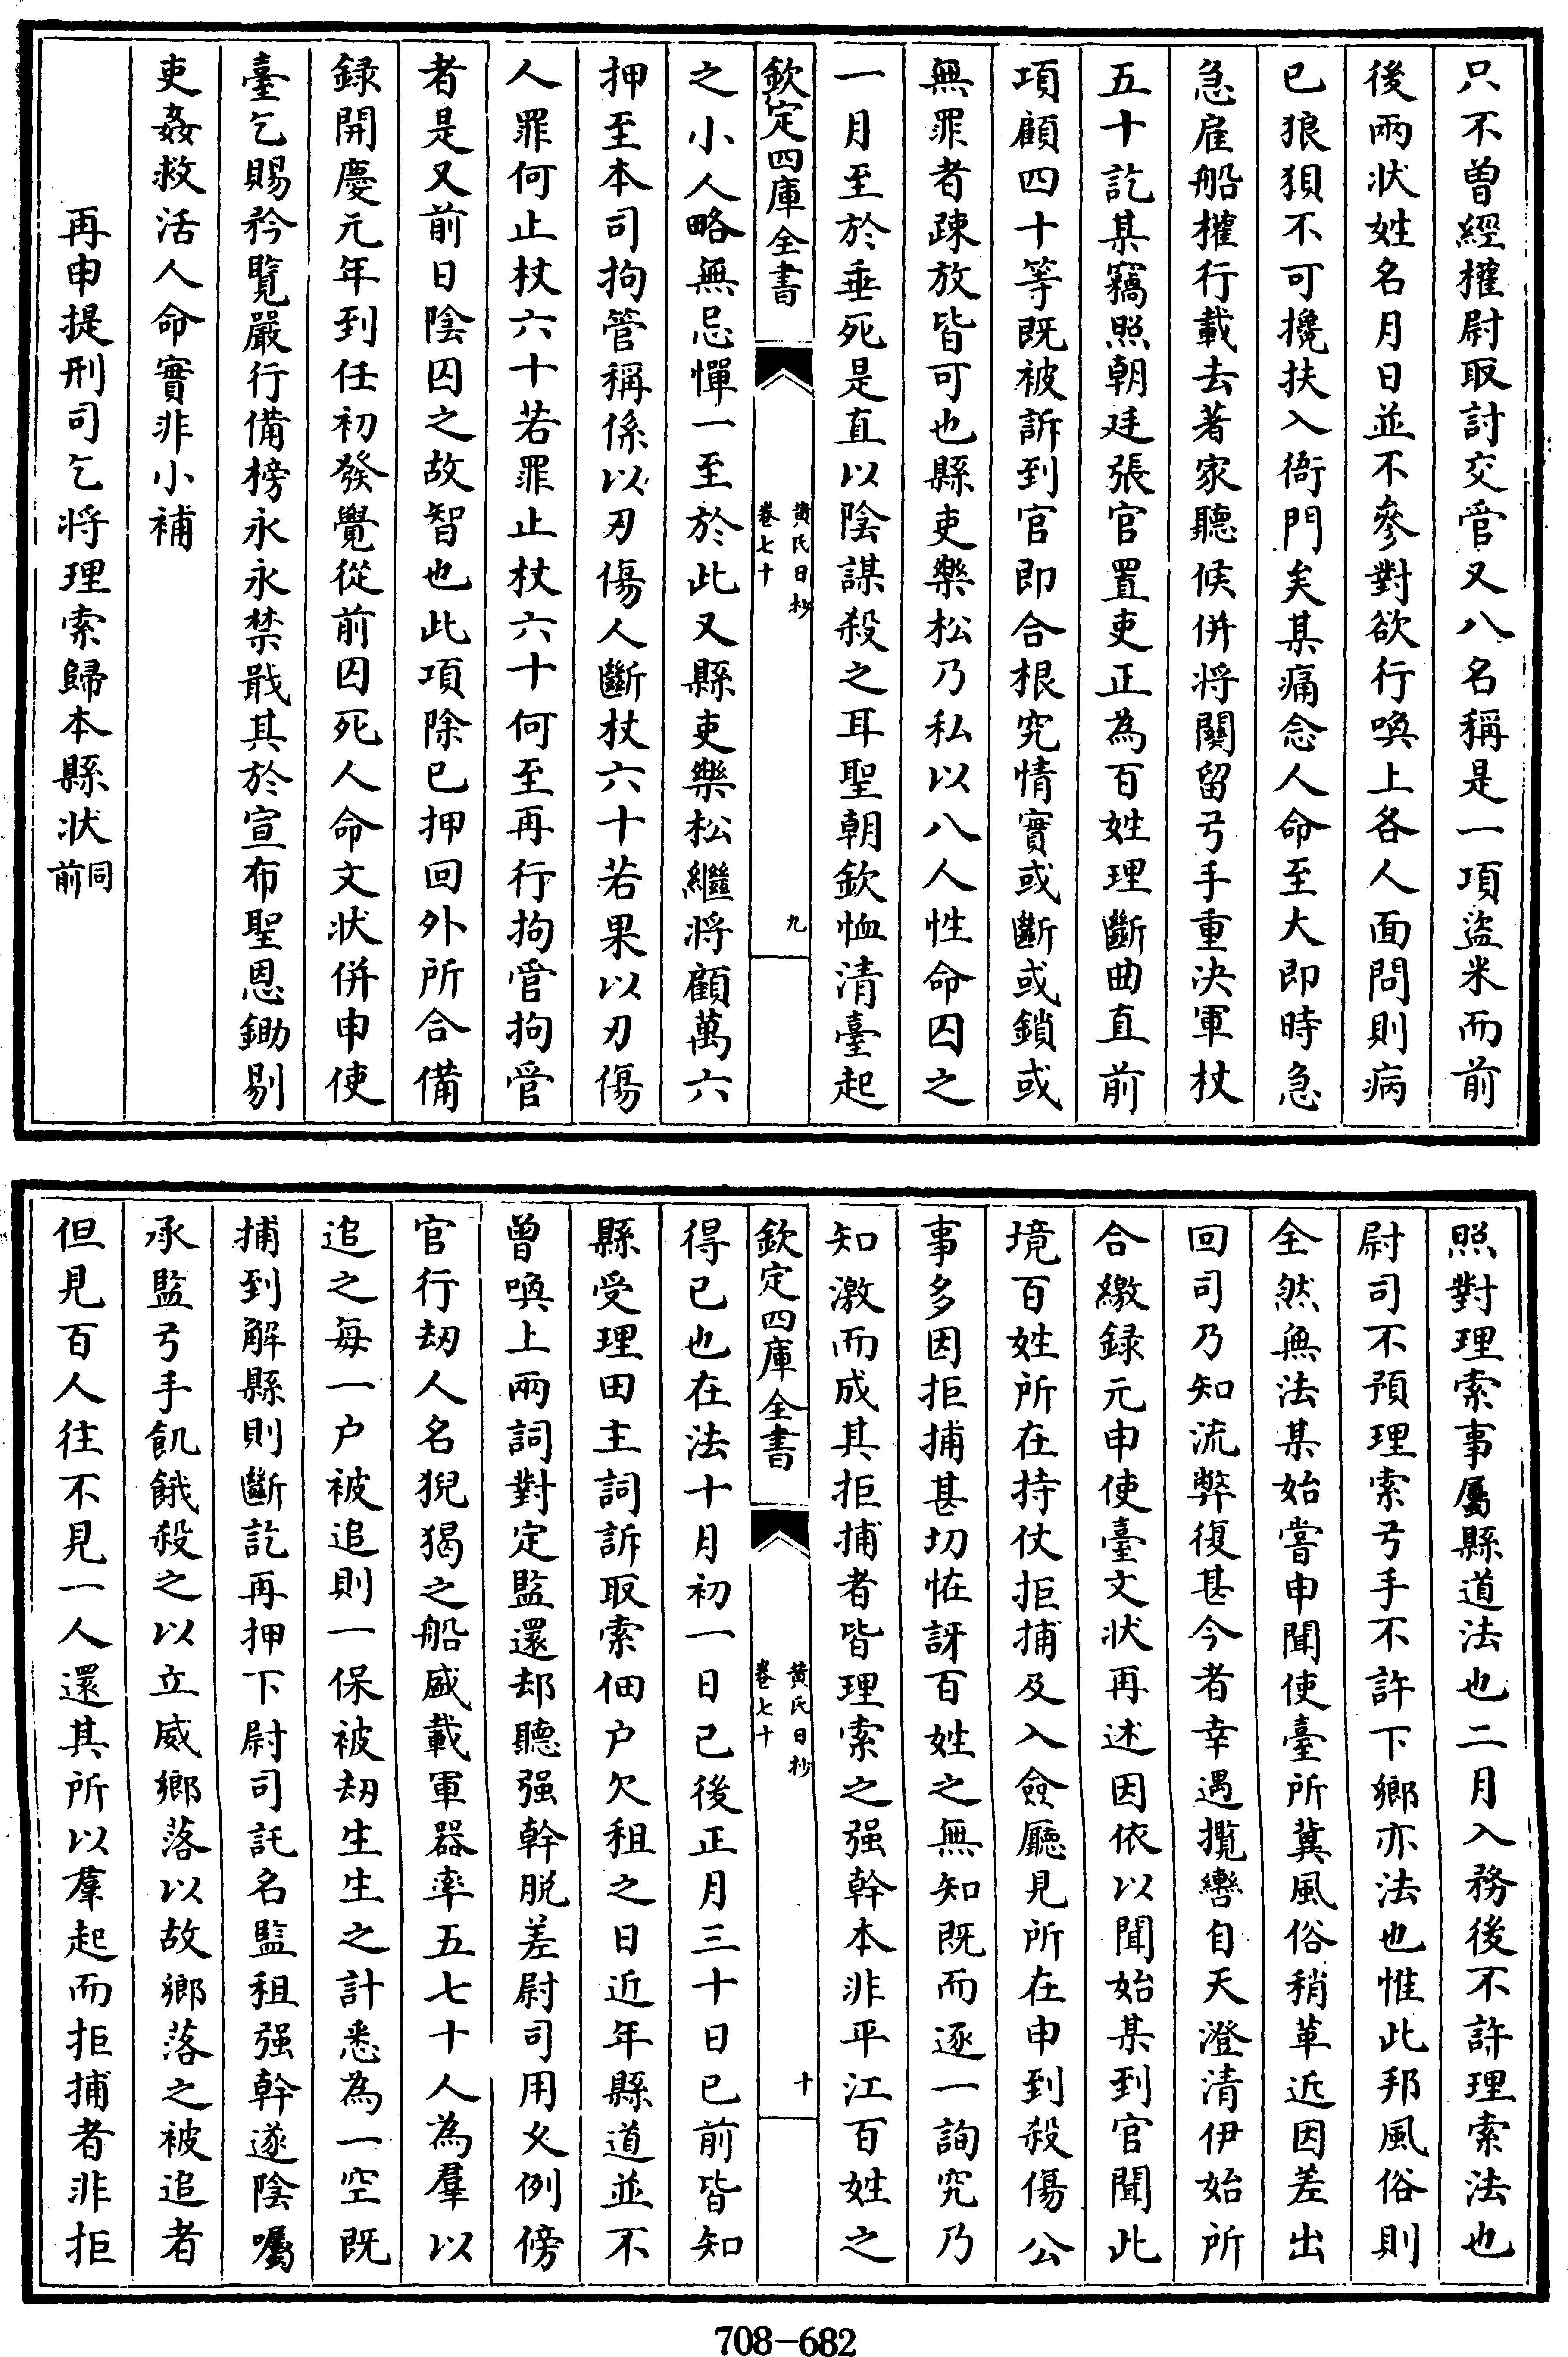 只不曾經權尉取討交管又八名稱是一項盜米而前
後兩狀姓名月日並不參對欲行喚上各人面問則病
已狼狽不可攙扶入衙門矣某痛念人命至大即時急
急雇船權行載去著家聽候併將關留弓手重決軍杖
五十訖某竊照朝廷張官置吏正為百姓理斷曲直前
項顧四十等既被訴到官即合根究情實或斷或鎖或
無罪者疎放皆可也縣吏樂松乃私以八人性命囚之
一月至於垂死是直以陰謀殺之耳聖朝欽恤清臺起
欽定四庫全書
黃氏日抄
卷七十
九
之小人略無忌憚一至於此又縣吏樂松繼將顧萬六
押至本司拘管稱係以刃傷人斷杖六十若果以刃傷
人罪何止杖六十若罪止杖六十何至再行拘管拘管
者是又前日陰囚之故智也此項除已押回外所合備
録開慶元年到任初發覺從前囚死人命文狀併申使
臺乞賜矜覽嚴行備榜永永禁戢其於宣布聖恩鋤剔
吏姦救活人命實非小補
再申提刑司乞將理索歸本縣狀同前
照對理索事屬縣道法也二月入務後不許理索法也
尉司不預理索弓手不許下鄉亦法也惟此邦風俗則
全然無法某始嘗申聞使臺所冀風俗稍革近因差出
回司乃知流弊復甚今者幸遇攬轡自天澄清伊始所
合繳録元申使臺文狀再述因依以聞始某到官聞此
境百姓所在持仗拒捕及入僉廳見所在申到殺傷公
事多因拒捕甚切恠訝百姓之無知既而逐一詢究乃
知激而成其拒捕者皆理索之强幹本非平江百姓之
欽定四庫全書
黃氏日抄
卷七十
十
得已也在法十月初一日已後正月三十日已前皆知
縣受理田主詞訴取索佃户欠租之日近年縣道並不
曾喚上兩詞對定監還却聽强幹脱差尉司用乆例傍
官行刼人名猊獦之船盛載軍器率五七十人為羣以
追之每一户被追則一保被刼生生之計悉為一空既
捕到解縣則斷訖再押下尉司託名監租强幹遂陰囑
承監弓手飢餓殺之以立威鄉落以故鄉落之被追者
但見百人往不見一人還其所以羣起而拒捕者非拒
708-682